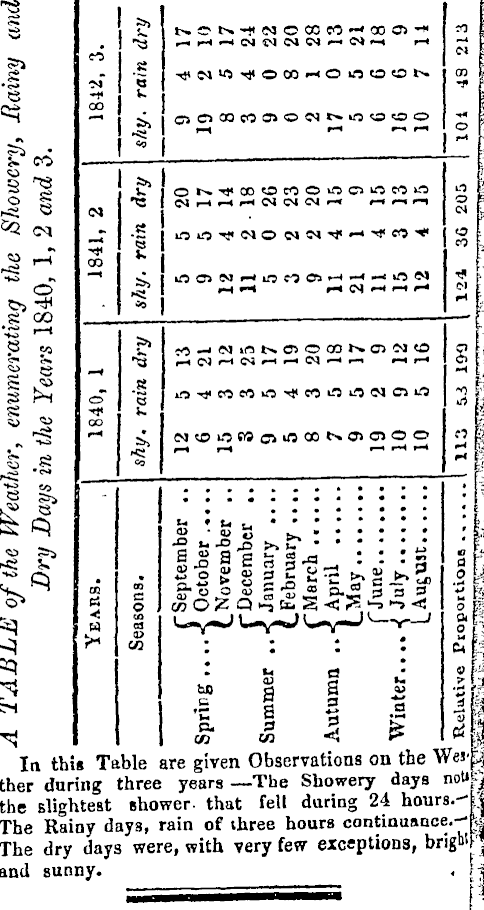 A TABLE of the Weather, enumerating the Showery, Rainy and
Dry Days in the Years 1840, 1, 2 and 3.
YEARS. 1840, 1 1841, 2 1842, 3.
Seasons. shy. rain dry shy. rain dry shy. rain dry
September .. 12 5 13 5 5 20 9 4 17
Spring .... October ..... 6 4 21 9 5 17 19 2 10
November .. 15 3 12 12 4 14 8 5 17
December .. 3 3 25 11 2 18 3 4 24
Summer .. January .... 9 5 17 5 0 26 9 0 22
February .... 5 4 19 3 2 23 0 8 20
March ...... 8 3 20 9 2 20 2 1 28
Autumn .. April ...... 7 5 18 11 4 15 17 0 13
May ........ 9 5 17 21 1 9 5 5 21
June........ 19 2 9 11 4 15 6 6 18
Winter.... July ....... 10 9 12 15 3 13 16 6 9
August...... 10 5 16 12 4 15 10 7 14
Relative Proportions ...... 113 53 199 124 36 205 104 48 213
In this Table are given Observations on the Wea-
ther during three years —The Showery days note
the slightest shower that fell during 24 hours.—
The Rainy days, rain of three hours continuance.—
The dry days were, with very few exceptions, bright
and sunny.